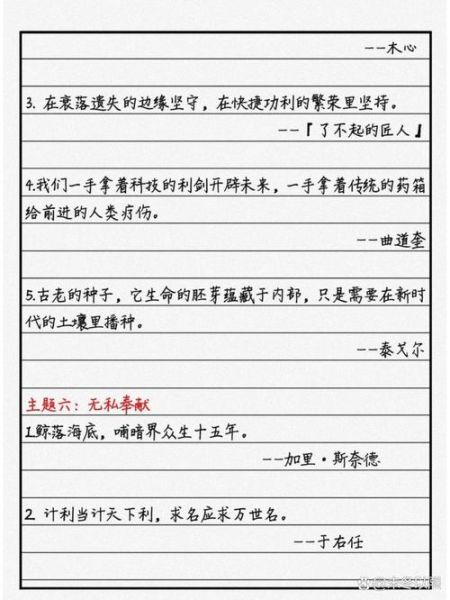 --木心
3. 在衰落遗失的边缘坚守，在快捷功利的繁荣里坚持。
--『了不起的匠人』
4.我们一手拿着科技的利剑开辟未来，一手拿着传统的药箱
给前进的人类疗伤。
--曲道奎
5.古老的种子，它生命的胚芽蕴藏于内部，只是需要在新时
代的土壤里播种。
--泰戈尔
主题六：无私奉献
1.鲸落海底，哺暗界众生十五年。
--加里·斯奈德
2 计利当计天下利，求名应求万世名。
--于右任